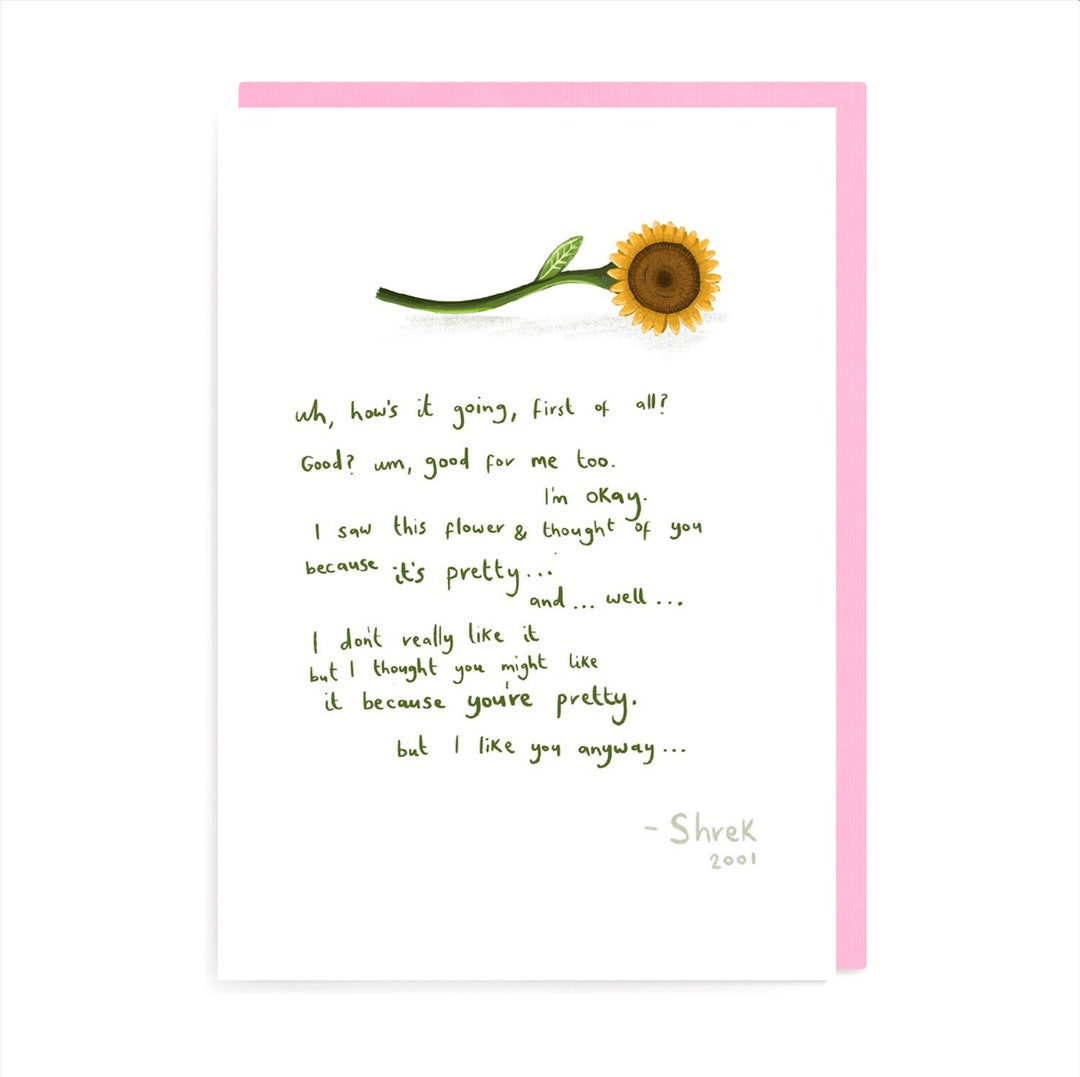 uh, how's it going, first of all?
Good? um, good for me too.
I'm okay.
I saw this flower & thought of you
because it's pretty...
and... well...
I don't really like it
but I thought you might like
it because you're pretty.
but I like you anyway...
- Shrek
2001